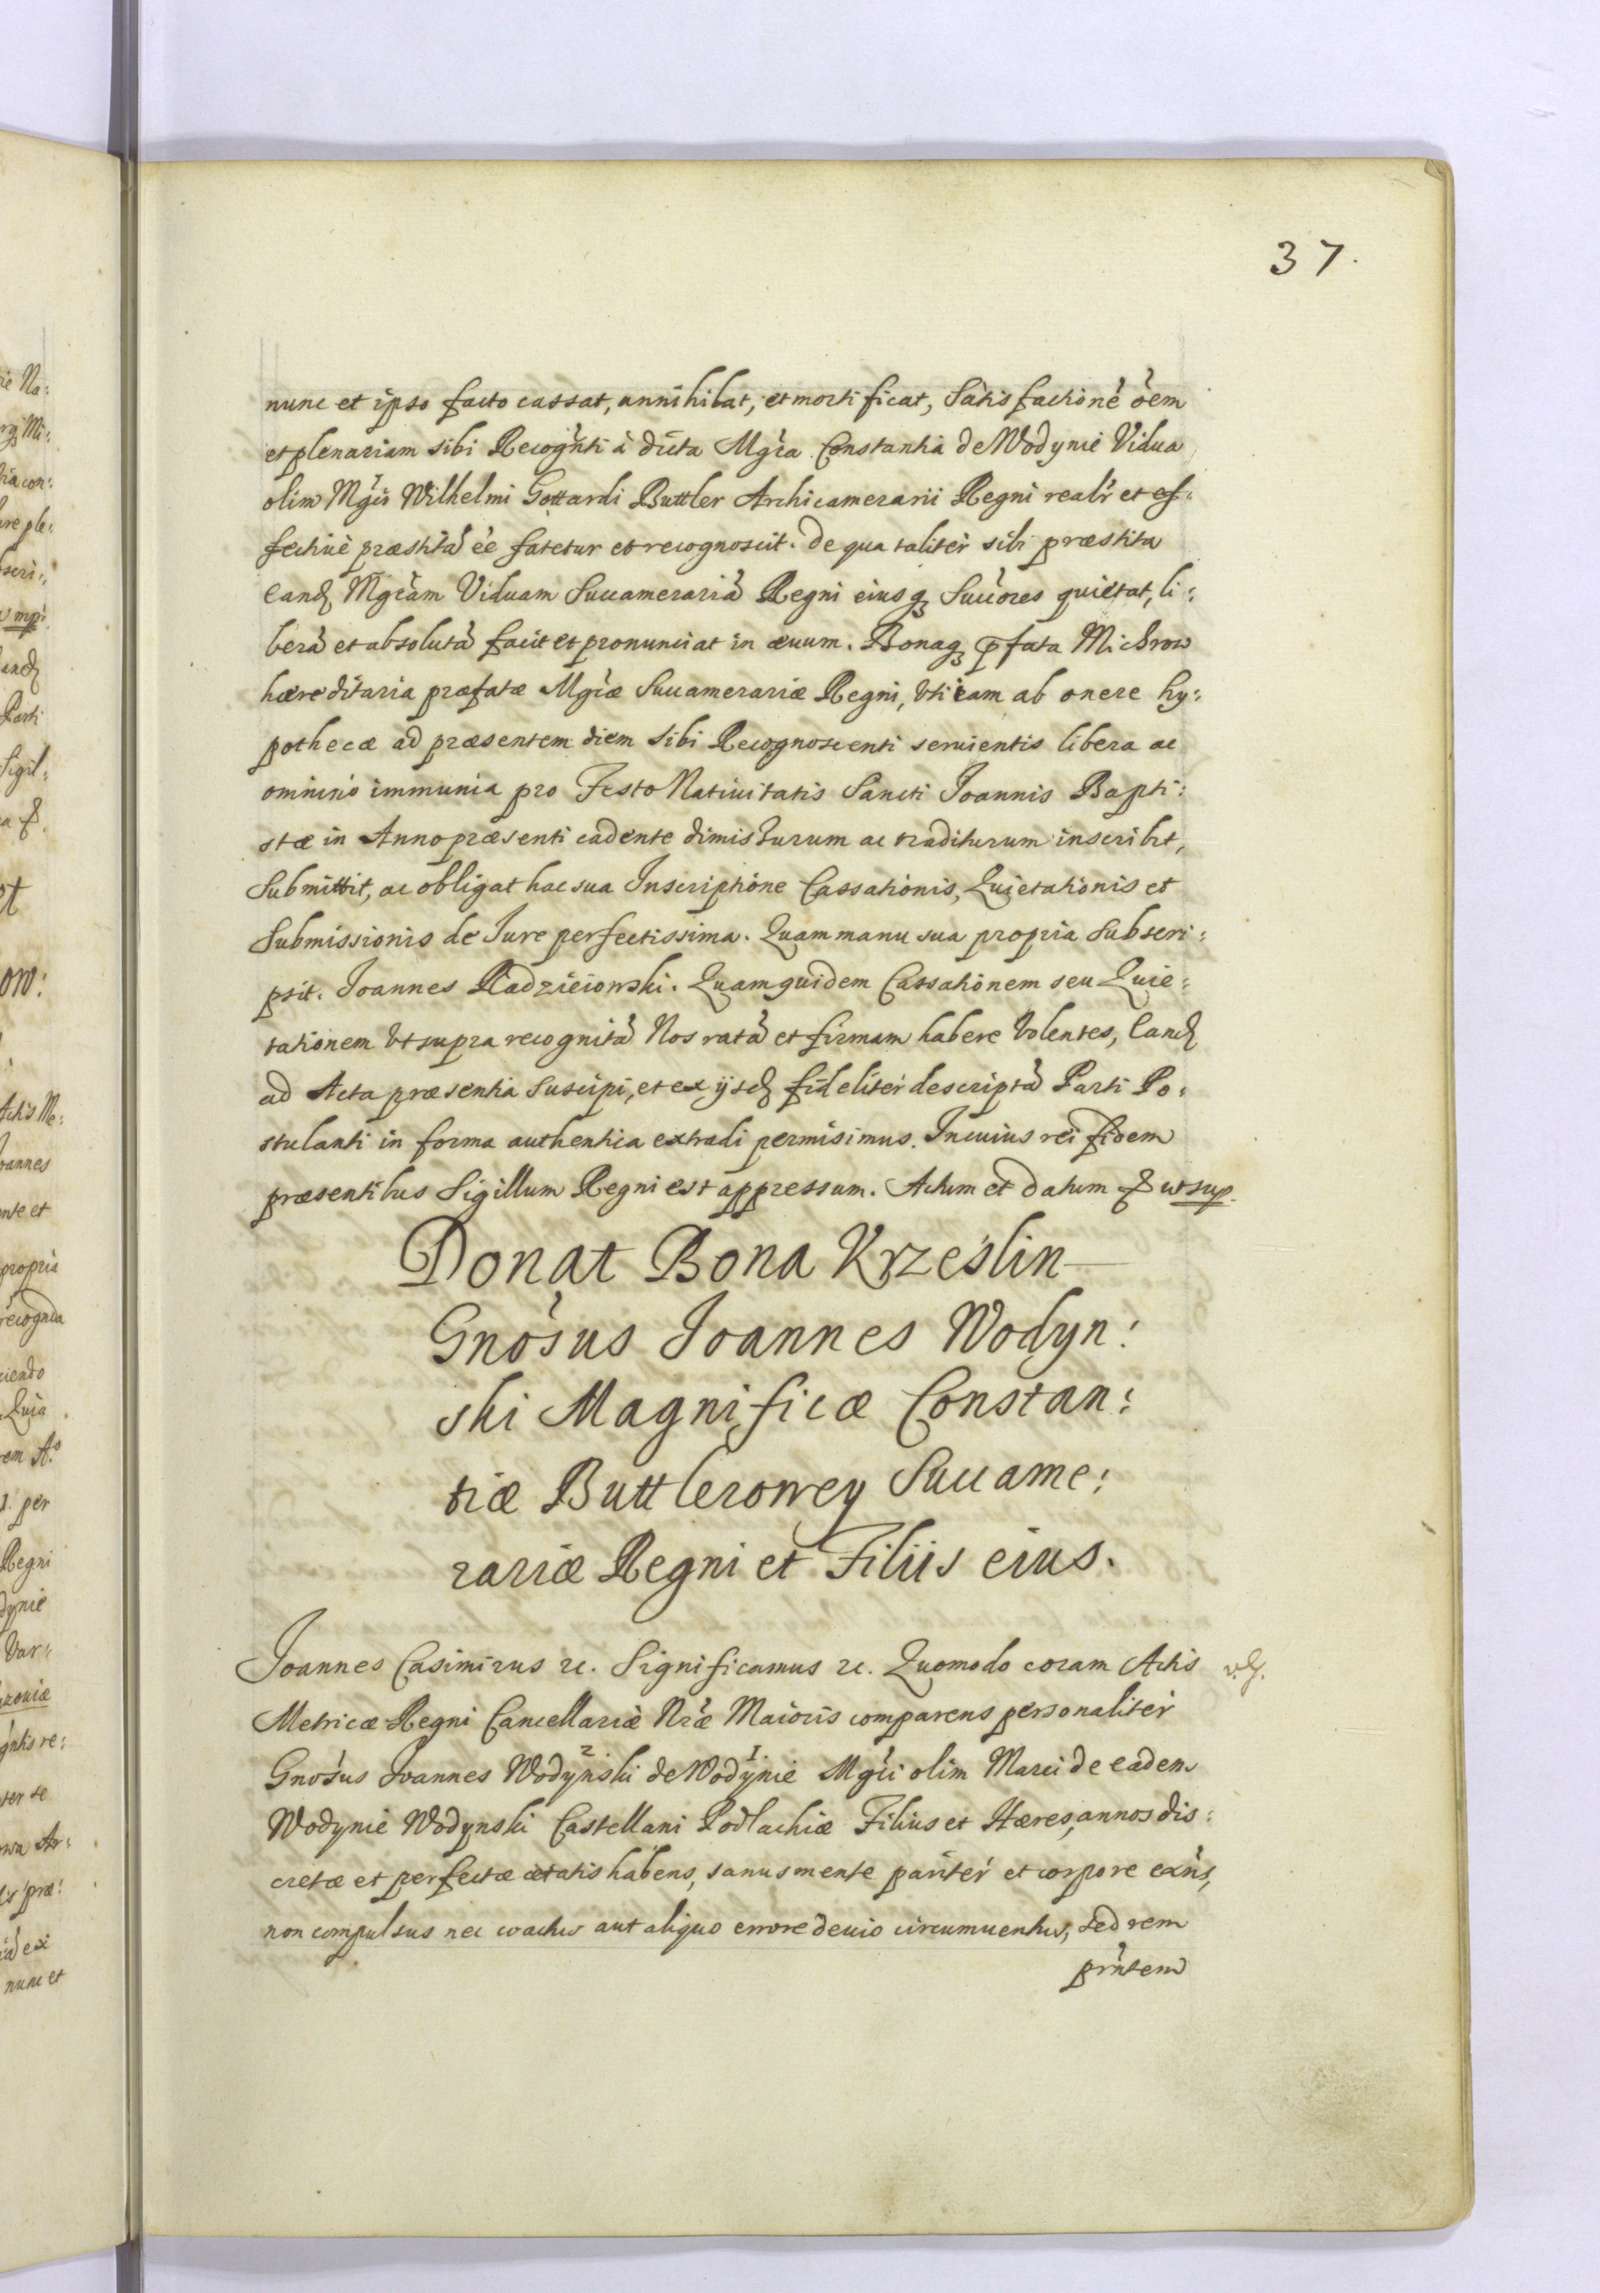 37.
nunc et ipso facto cassat, annihibat, et mortificat, Satisfactionē ōem
et plenariam sibi Recognti à dicta Mgca Constantia de Wodynie Vidua
olim Mgci Wilhelmi Gottardi Buttler Archicamerarii Regni realr et ef:
fectiuè præstitā ee fatetur et recognoscit. De qua taliter sibi præstita
eandq Mgcam Viduam Succamerariā Regni eiusq Succores quietat, li:
berā et absolutā facit et pronunciat in æuum. Bonaq pfata Michrow
hæreditaria præfatæ Mgcæ Succamerariæ Regni, vti eam ab onere hy:
pothecæ ad præsentem diem sibi Recognoscenti seruientis libera ac
omninò immunia pro Festo Natiuitatis Sancti Joannis Bapti:
stæ in Anno præsenti cadente dimissurum ac traditurum inscribit,
Submittit, ac obligat hac sua Inscriptione Cassationis, Quietationis et
Submissionis de Jure perfectissima. Quam manu sua propria subscri:
psit. Joannes Radzieiowski. Quamquidem Cassationem seu Quie:
tationem vt supra recognitā Nos ratā et firmam habere volentes, eandq
ad Acta præsentia suscipi, et ex ijsdq fideliter descriptā Parti Po:
stulanti in forma authentica extradi permisimus. In cuius rei fidem
præsentibus Sigillum Regni est appressum. Actum et Datum & ut sup.
Donat Bona Krześlin
Gnosus Joannes Wodyn:
ski Magnificæ Constan:
tiæ Buttlerowey Succame:
rariæ Regni et Filiis eius.
Joannes Casimirus &c. Significamus &c. Quomodo coram Actis
Metricæ Regni Cancellariæ Nræ Maioris comparens personaliter
2 1.
Gnosus Joannes Wodynski de Wodynie Mgci olim Marci de eadem
Wodynie Wodynski Castellani Podlachiæ Filius et Hæres, annos dis:
cretæ et perfectæ ætatis habens, sanus mente pariter et corpore exns,
non compulsus nec coactus aut aliquo errore deuio circumuentus, sed rem
prntem